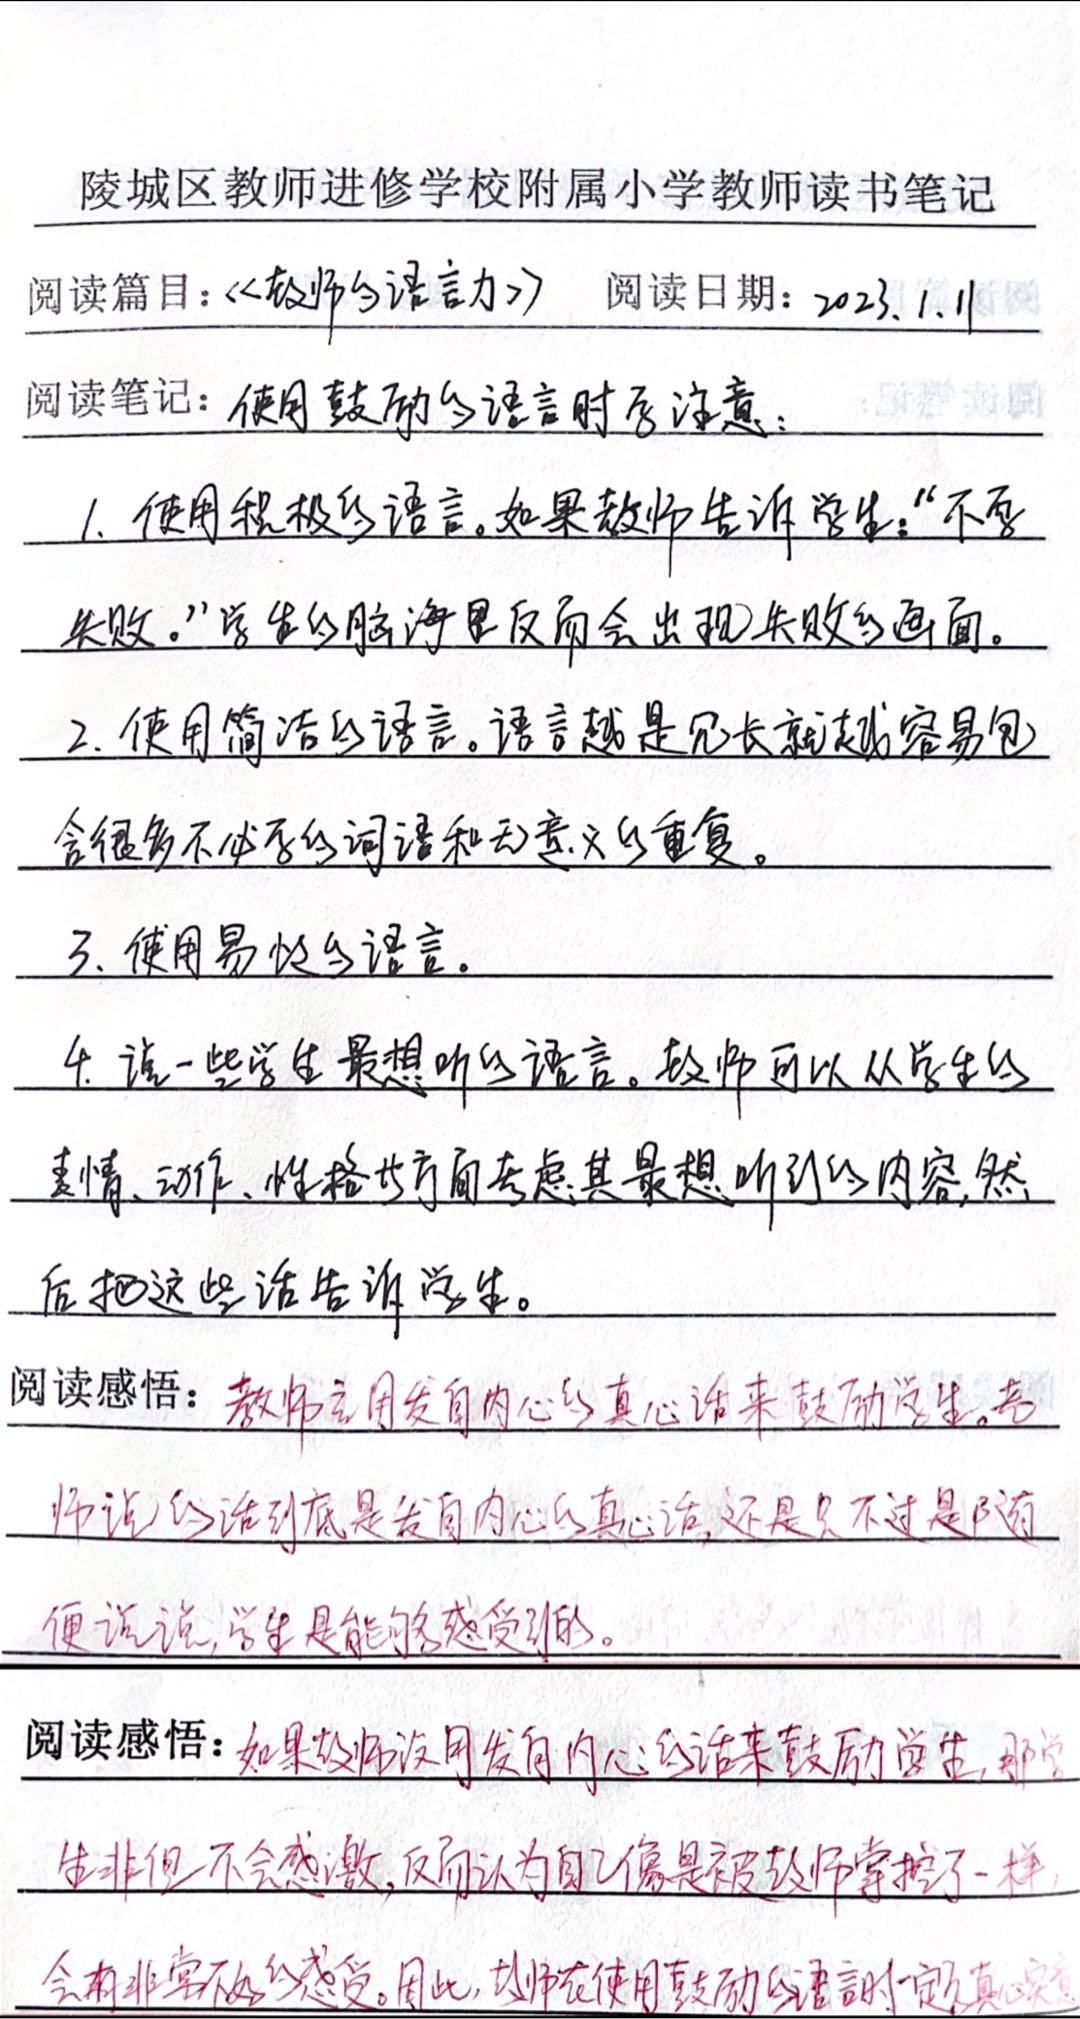 陵城区教师进修学校附属小学教师读书笔记
阅读篇目：《教师的语言力》 阅读日期：2023.1.11
阅读笔记：使用鼓励的语言时要注意：
1. 使用积极的语言。如果教师告诉学生："不要
失败。"学生的脑海里反而会出现失败的画面。
2. 使用简洁的语言。语言越是冗长就越容易包
含很多不必要的词语和无意义的重复。
3. 使用易懂的语言。
4. 说一些学生最想听的语言。教师可以从学生的
表情、动作、性格等方面考虑其最想听到的内容,然
后把这些话告诉学生。
阅读感悟：教师应用发自内心的真心话来鼓励学生。老
师说的话到底是发自内心的真心话,还是只不过是随
便说说,学生是能够感受到的。
阅读感悟：如果教师没用发自内心的话来鼓励学生,那学
生非但不会感激,反而认为自己像是被教师掌控了一样,
会有非常不好的感受。因此,教师在使用鼓励的语言时一定要真心实意